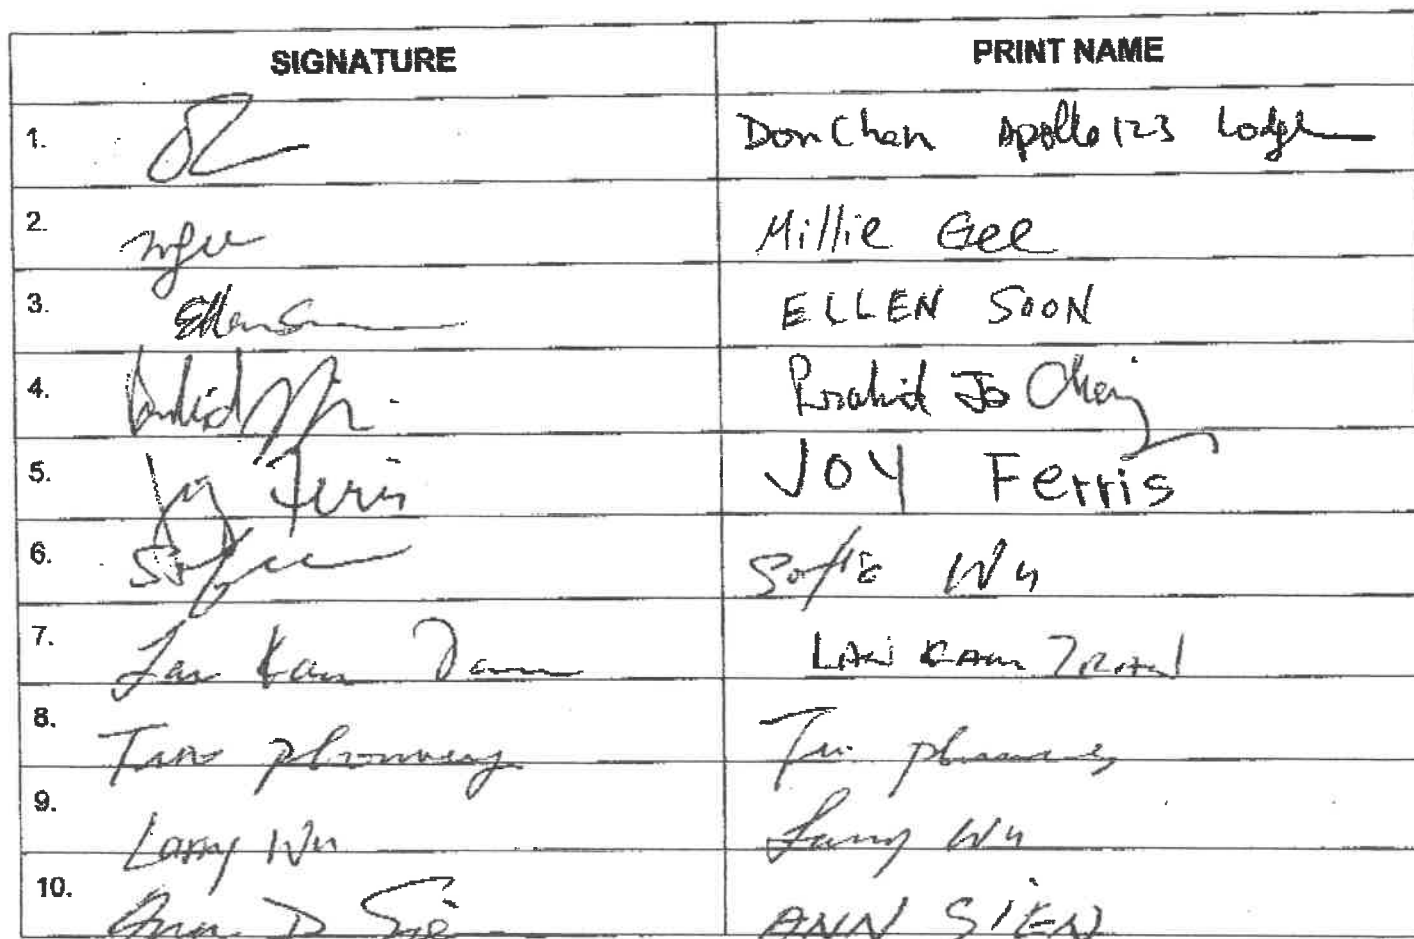 SIGNATURE PRINT NAME
1. Don Chen Apollo 123 Lodge
2. Millie Gee
3. Ellen S ELLEN SOON
4. Jo
5. Joy Ferris JOY Ferris
6. Sofia Wu
7. Lan Kam LAN KAM TRAN
8. Tran
9. Larry Wu Larry Wu
10. Ann D Sien ANN SIEN